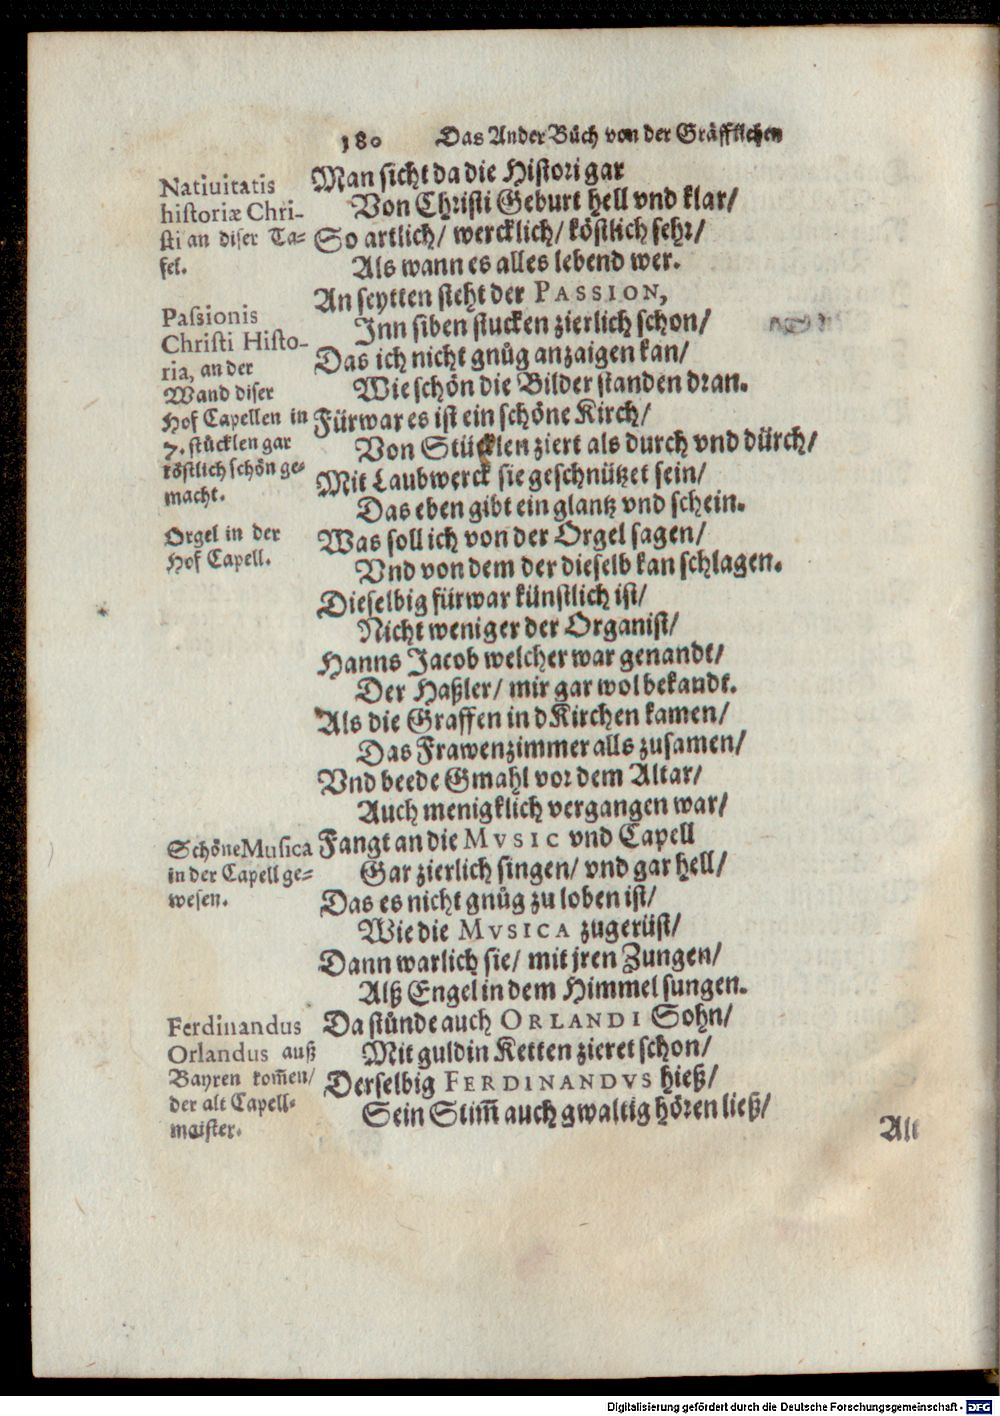 180 Das Ander Bůch von der Gräfflichen
Natiuitatis
historiæ Chri-
sti an diser Ta-
fel.
Passionis
Christi Histo-
ria, an der
Wand diser
Hof Capellen in
7. stücklen gar
köstlich schön ge-
macht.
Orgel in der
Hof Capell.
Schöne Musica
in der Capell ge-
wesen.
Ferdinandus
Orlandus auß
Bayren kom̃en/
der alt Capell-
maister.
Man sicht da die Histori gar
Von Christi Geburt hell vnd klar/
So artlich/ wercklich/ köstlich sehr/
Als wann es alles lebend wer.
An seytten steht der PASSION,
Inn siben stucken zierlich schon/
Das ich nicht gnůg anzaigen kan/
Wie schön die Bilder standen dran.
Fürwar es ist ein schöne Kirch/
Von Stücklen ziert als durch vnd dürch/
Mit Laubwerck sie geschnützet sein/
Das eben gibt ein glantz vnd schein.
Was soll ich von der Orgel sagen/
Vnd von dem der dieselb kan schlagen.
Dieselbig fürwar künstlich ist/
Nicht weniger der Organist/
Hanns Jacob welcher war genandt/
Der Haßler/ mir gar wol bekandt.
Als die Graffen in d Kirchen kamen/
Das Frawenzimmer alls zusamen/
Vnd beede Gmahl vor dem Altar/
Auch menigklich vergangen war/
Fangt an die MVSIC vnd Capell
Gar zierlich singen/ vnd gar hell/
Das es nicht gnůg zu loben ist/
Wie die MVSICA zugerüst/
Dann warlich sie/ mit jren Zungen/
Alß Engel in dem Himmel sungen.
Da stůnde auch ORLANDI Sohn/
Mit guldin Ketten zieret schon/
Derselbig FERDINANDVS hieß/
Sein Stim̃ auch gwaltig hören ließ/
Alt
Digitalisierung gefördert durch die Deutsche Forschungsgemeinschaft - DFG